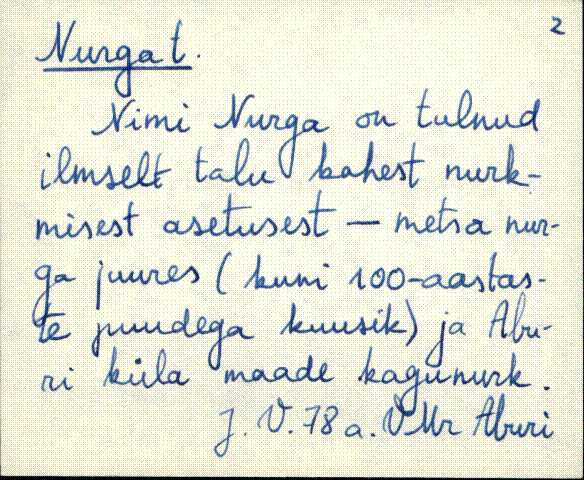 2
Nurga t.
Nimi Nurga on tulnud
ilmselt talu kahest nurk-
misest asetusest — metsa nur-
ga juures (kuni 100-aastas-
te puudega kuusik) ja Abu-
ri küla maade kagunurk.
J. V. 78 a. VMr Aburi